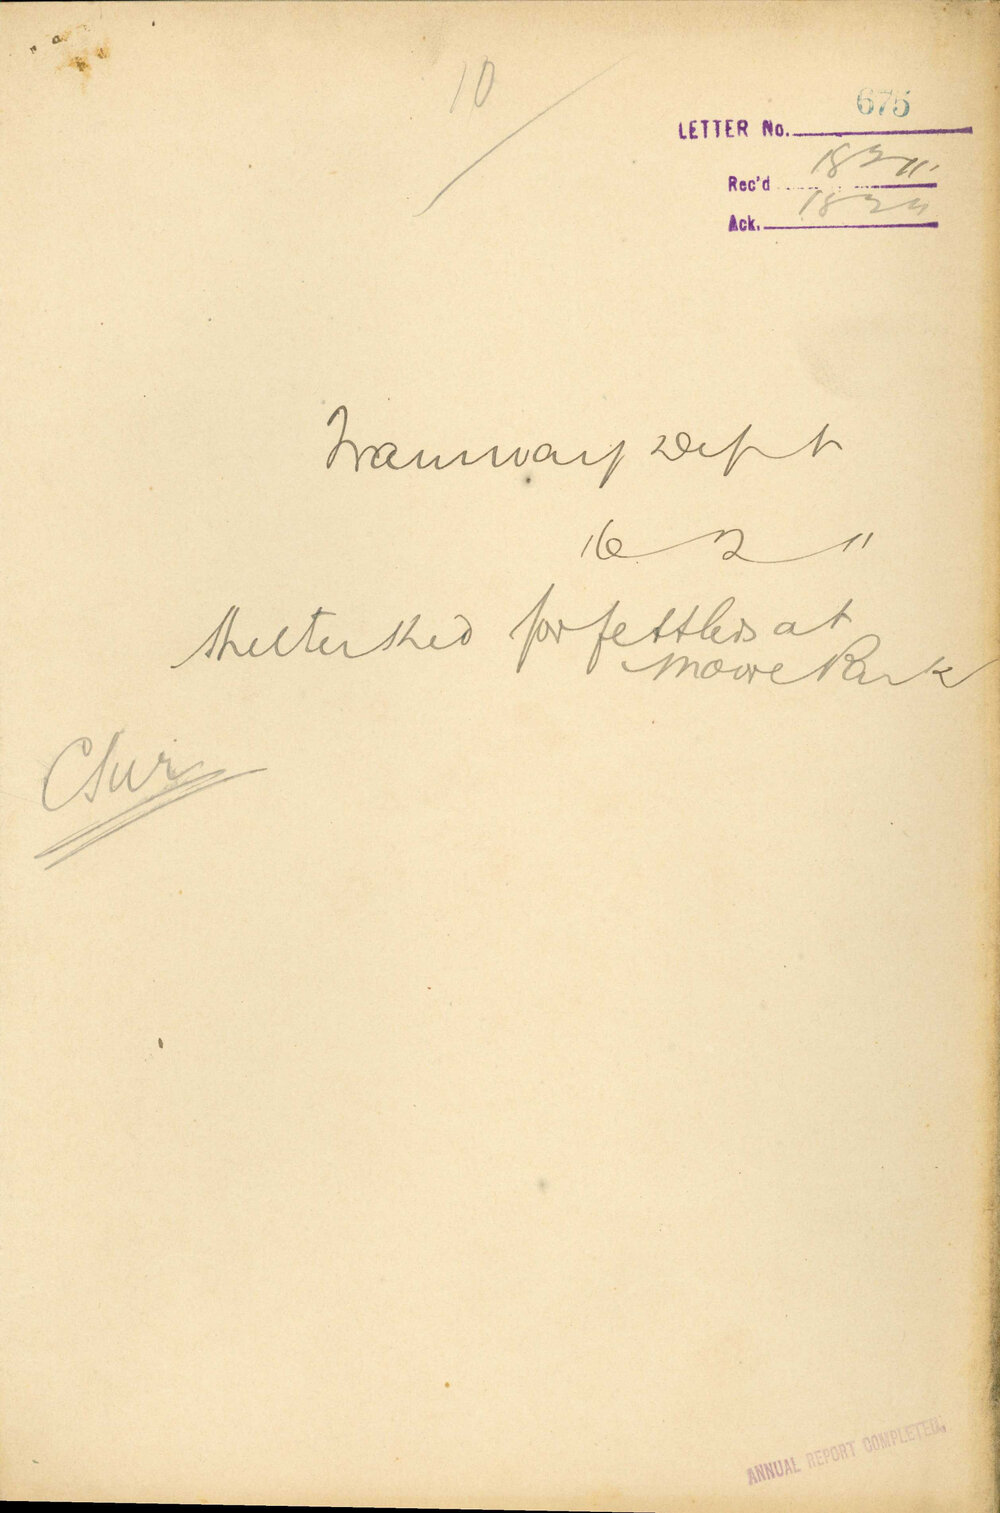 10
LETTER No. 675
Rec'd 18 2 11.
Ack. 18 2 11
Tramway Dept
16 2 11
Shelter shed for fettlers at
Moore Park
ANNUAL REPORT COMPLETED.